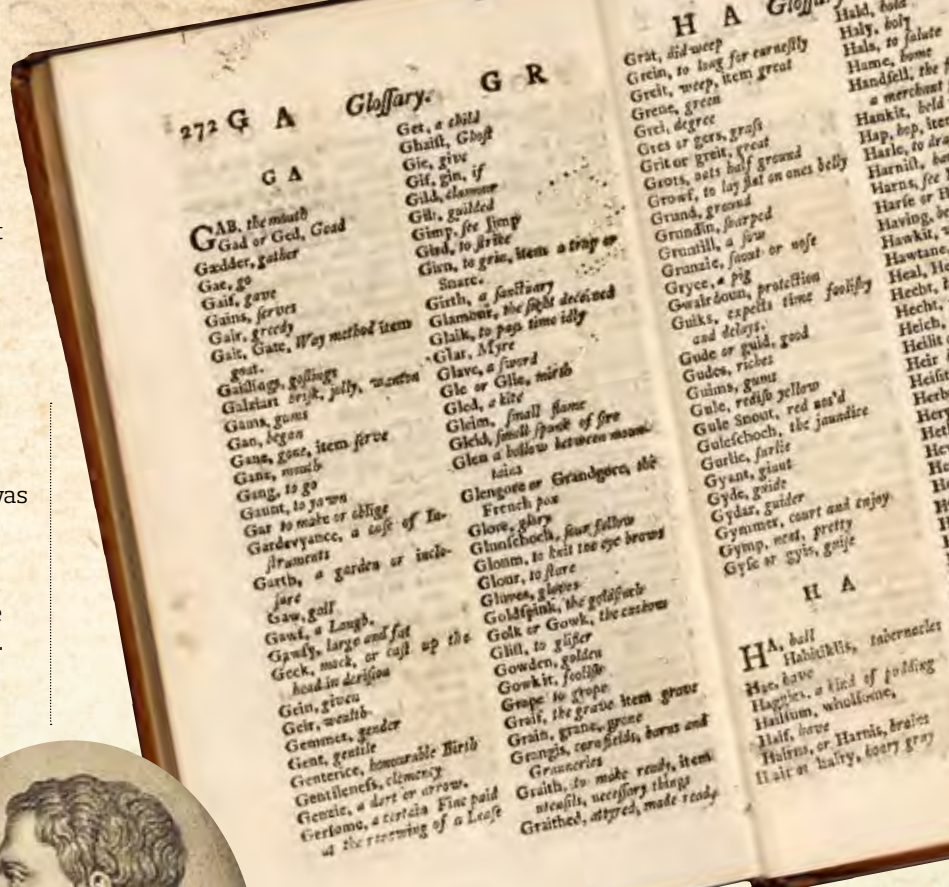 272 G A Glossary. G R
G A
GAB, the mouth
Gad or Ged, Goad
Gædder, gather
Gae, go
Gaif, gave
Gains, serves
Gair, greedy
Gait, Gate, Way method item
goat.
Gaislings, goslings
Galziart brisk, jolly, wanton
Gams, gums
Gan, began
Gane, gone, item serve
Gang, to go
Gaunt, to yawn
Gar to make or oblige
Gardevyance, a case of In-
struments
Garth, a garden or inclo-
sure
Gaw, gall
Gawf, a Laugh.
Gawsy, large and fat
Geck, mock, or cast up the
head in derision
Gein, given
Geir, wealth
Gemmer, gender
Gent, gentile
Genterice, honourable Birth
Gentileness, clemency
Genzie, a dart or arrow.
Gersome, a certain Fine paid
at the renewing of a Lease
Get, a child
Ghaist, Ghost
Gie, give
Gif, gin, if
Gild, clamour
Gilt, guilded
Gimp, see Jimp
Gird, to strike
Girn, to grin, item a trap or
Snare.
Girth, a sanctuary
Glamour, the sight deceived
Glaik, to pass time idly
Glar, Myre
Glave, a sword
Gle or Glie, mirth
Gled, a kite
Gleim, small flame
Gleid, small spark of fire
Glen a hollow between moun-
tains
Glengore or Grandgore, the
French pox
Glore, glory
Glunschoch, sour fellow
Gloum, to knit the eye brows
Glour, to stare
Gluves, gloves
Goldspink, the goldfinch
Golk or Gowk, the cuckow
Glist, to glister
Gowden, golden
Gowkit, foolish
Grape to grope
Graif, the grave item grave
Grain, grane, grone
Grangis, corn fields, barns and
Granneries
Graith, to make ready, item
utensils, necessary things
Graithed, attyred, made ready
H A Glossary
Grat, did weep
Grein, to long for earnestly
Greit, weep, item great
Grene, green
Grei, degree
Gres or gers, grass
Grit or greit, great
Grots, oats half ground
Growf, to lay flat on ones belly
Grund, ground
Grundin, sharped
Gruntill, a sow
Grunzie, snout or nose
Gryce, a pig
Gwairdoun, protection
Guiks, expects time foolishy
and delays.
Gude or guid, good
Gudes, riches
Guims, gums
Gule, redish yellow
Gule Snout, red nos'd
Guleschoch, the jaundice
Gurlie, surlie
Gyant, giant
Gyde, guide
Gydar, guider
Gymmer, court and enjoy
Gymp, neet, pretty
Gyse or gyis, guise
H A
HA, hall
Habitiklis, tabernacles
Hae, have
Haggies, a kind of pudding
Hailsum, wholsome,
Haif, have
Hairns, or Harnis, brains
Hair or hairy, hoary gray
Hald, hold
Haly, holy
Hals, to salute
Hame, home
Handsell, the
a merchant
Hankit, held
Hap, hop, item
Harle, to dra
Harnist,
Harns, see
Harse or H
Having,
Hawkit,
Hawtane,
Heal,
Hecht,
Hecht,
Heich,
Heilit
Heir
Heist
Herb
Her
Het
was